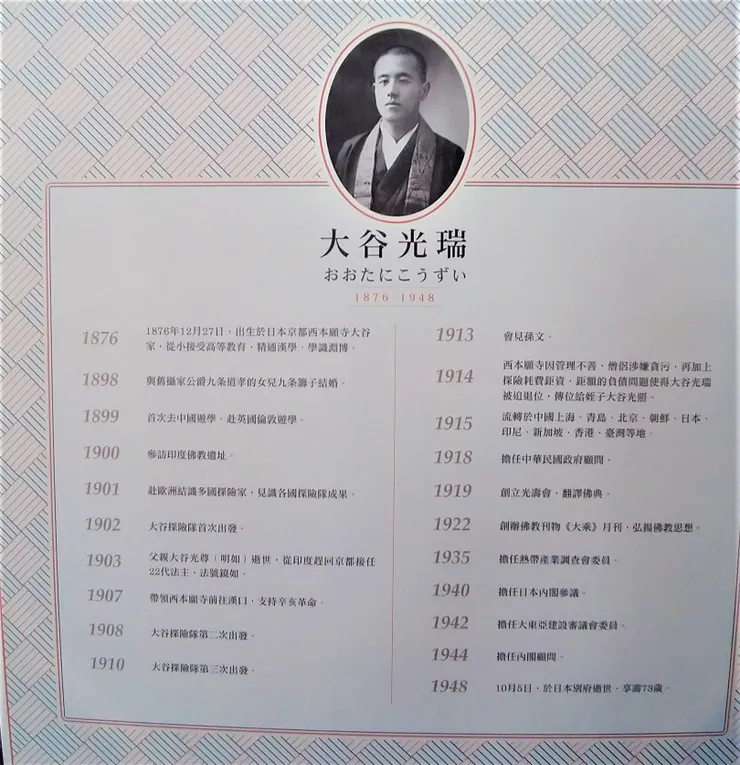 大谷光瑞
おおたにこうずい
1876-1948
1876
1876年12月27日，出生於日本京都西本願寺大谷
家，從小接受高等教育，精通漢學，學識淵博。
1898
與舊攝家公爵九条道孝的女兒九条籌子結婚。
1899
首次去中國遊學，赴英國倫敦遊學。
1900
參訪印度佛教遺址。
1901
赴歐洲結識多國探險家，見識各國探險隊成果。
1902
大谷探險隊首次出發。
1903
父親大谷光尊（明如）逝世，從印度趕回京都接任
22代法主，法號鏡如。
1907
帶領西本願寺前往漢口，支持辛亥革命。
1908
大谷探險隊第二次出發。
1910
大谷探險隊第三次出發。
1913
會見孫文。
1914
西本願寺因管理不善，僧侶涉嫌貪污，再加上
探險耗費距資，距額的負債問題使得大谷光瑞
被迫退位，傳位給蛭子大谷光照。
1915
流轉於中國上海、青島、北京、朝鮮、日本、
印尼、新加坡、香港、臺灣等地。
1918
擔任中華民國政府顧問。
1919
創立光壽會，翻譯佛典。
1922
創辦佛教刊物《大乘》月刊，弘揚佛教思想。
1935
擔任熱帶產業調查會委員。
1940
擔任日本內閣參議。
1942
擔任大東亞建設審議會委員。
1944
擔任內閣顧問。
1948
10月5日，於日本別府逝世，享壽73歲。